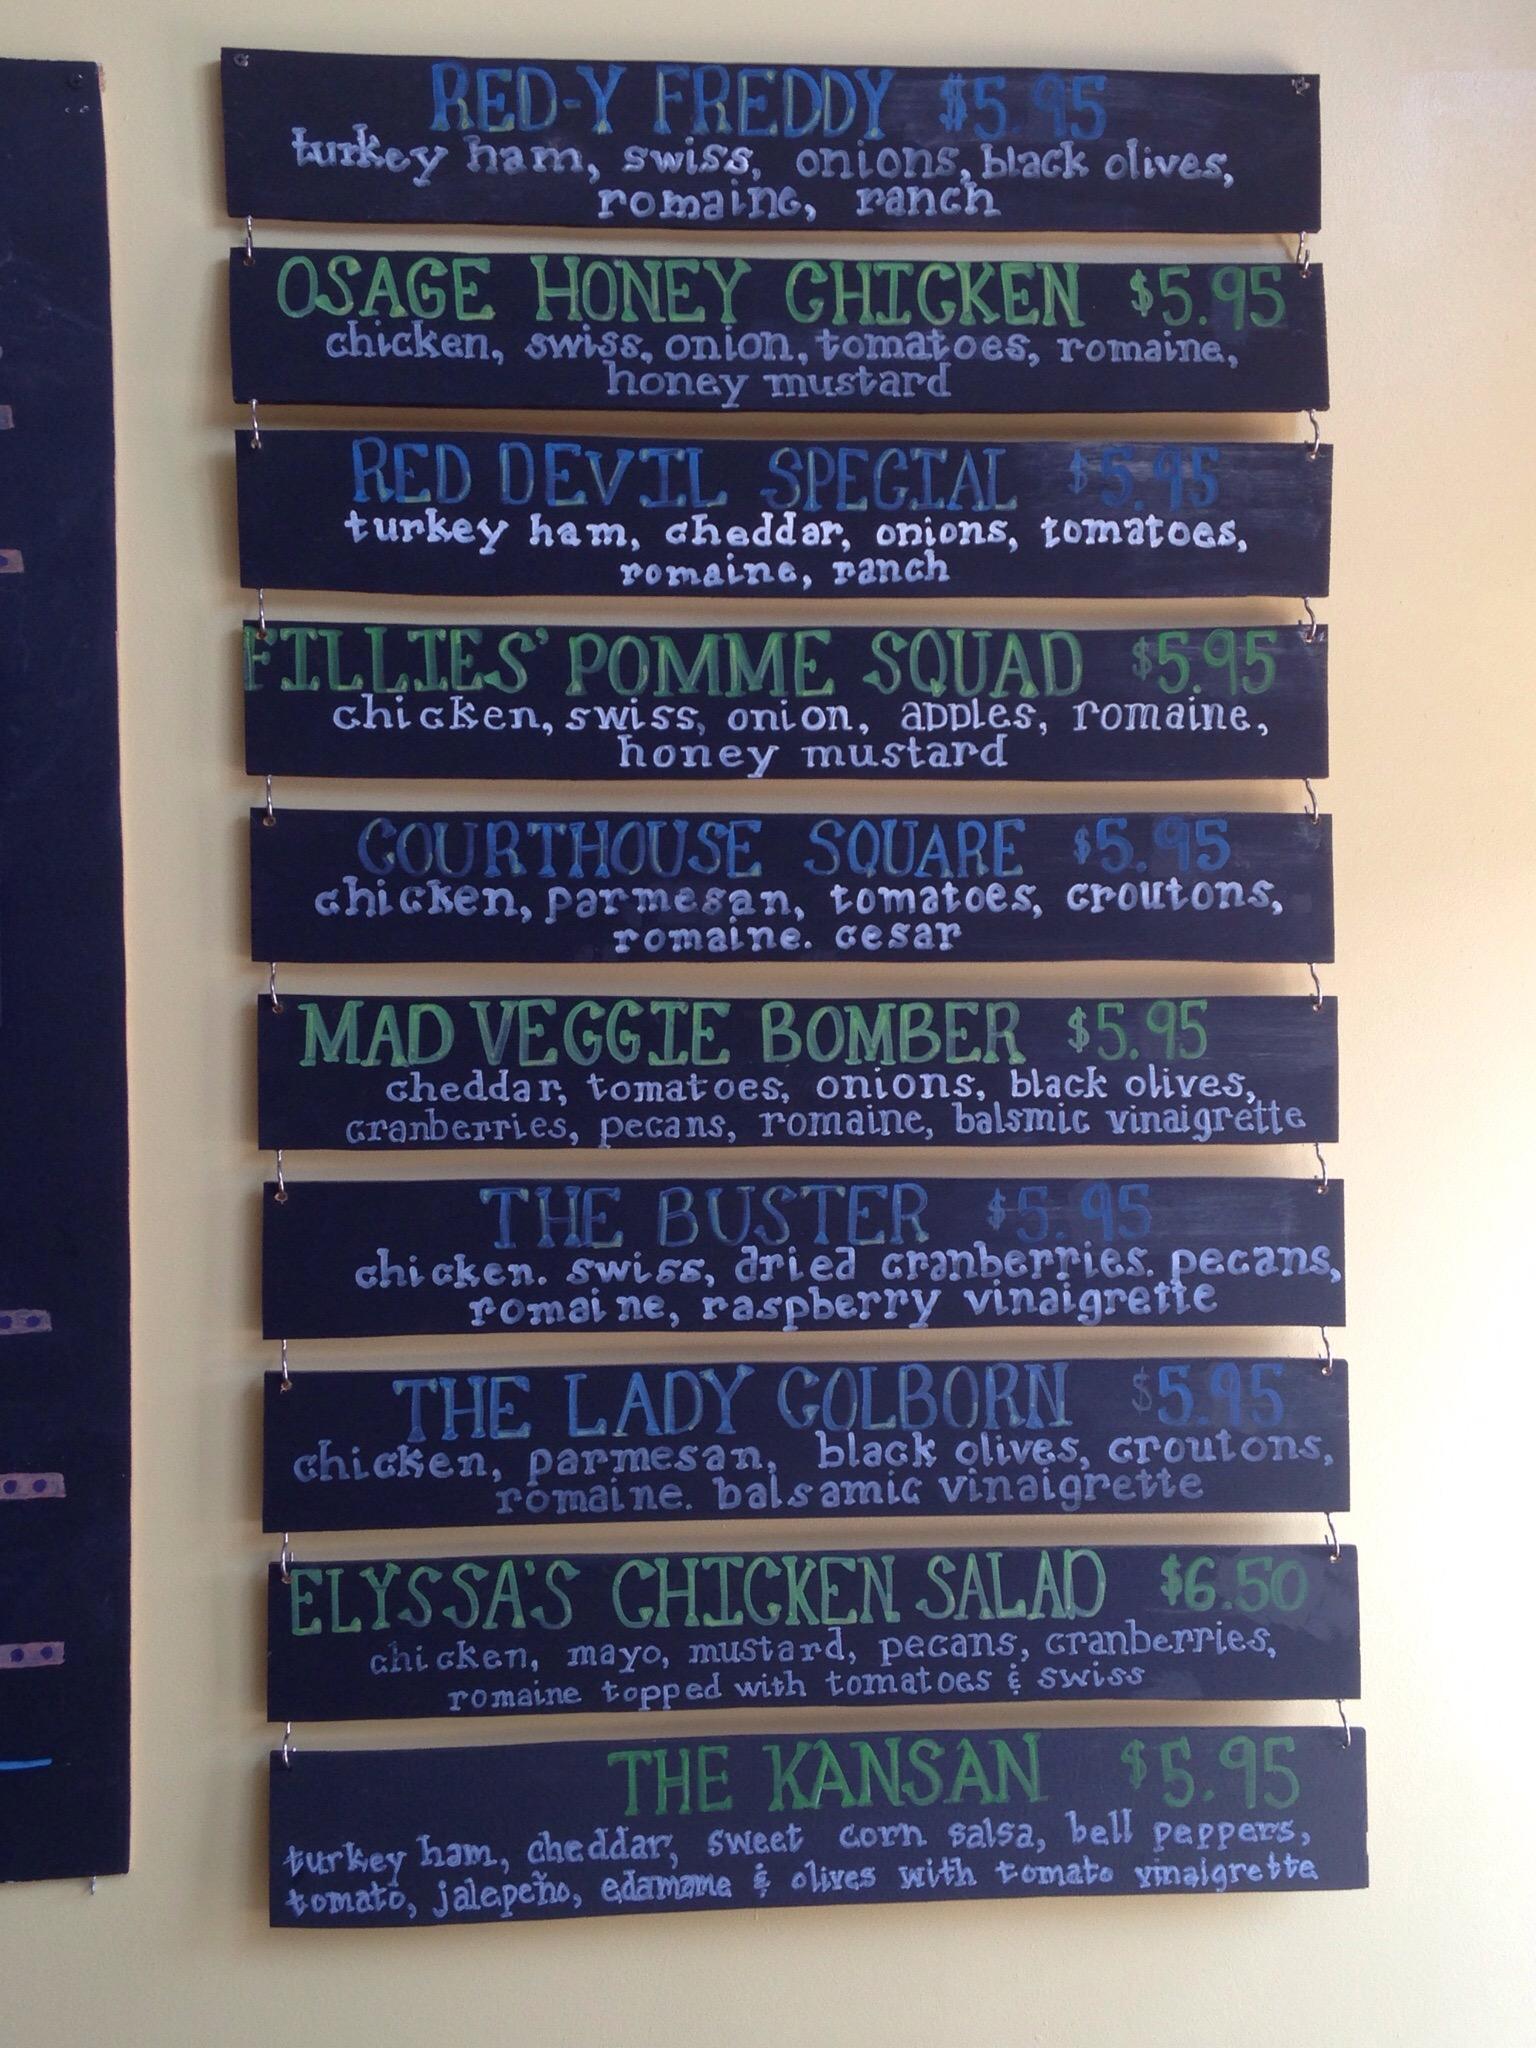 RED-Y FREDDY $5.95
turkey ham, swiss, onions, black olives,
romaine, ranch
OSAGE HONEY CHICKEN $5.95
chicken, swiss, onion, tomatoes, romaine,
honey mustard
RED DEVIL SPECIAL $5.95
turkey ham, cheddar, onions, tomatoes,
romaine, ranch
FILLIES' POMME SQUAD $5.95
chicken, swiss, onion, apples, romaine,
honey mustard
COURTHOUSE SQUARE $5.95
chicken, parmesan, tomatoes, croutons,
romaine. cesar
MAD VEGGIE BOMBER $5.95
cheddar, tomatoes, onions, black olives,
cranberries, pecans, romaine, balsmic vinaigrette
THE BUSTER $5.95
chicken. swiss, dried cranberries. pecans,
romaine, raspberry vinaigrette
THE LADY COLBORN $5.95
chicken, parmesan, black olives, croutons,
romaine. balsamic vinaigrette
ELYSSA'S CHICKEN SALAD $6.50
chicken, mayo, mustard, pecans, cranberries,
romaine topped with tomatoes & swiss
THE KANSAN $5.95
turkey ham, cheddar, sweet corn salsa, bell peppers,
tomato, jalepeño, edamame & olives with tomato vinaigrette